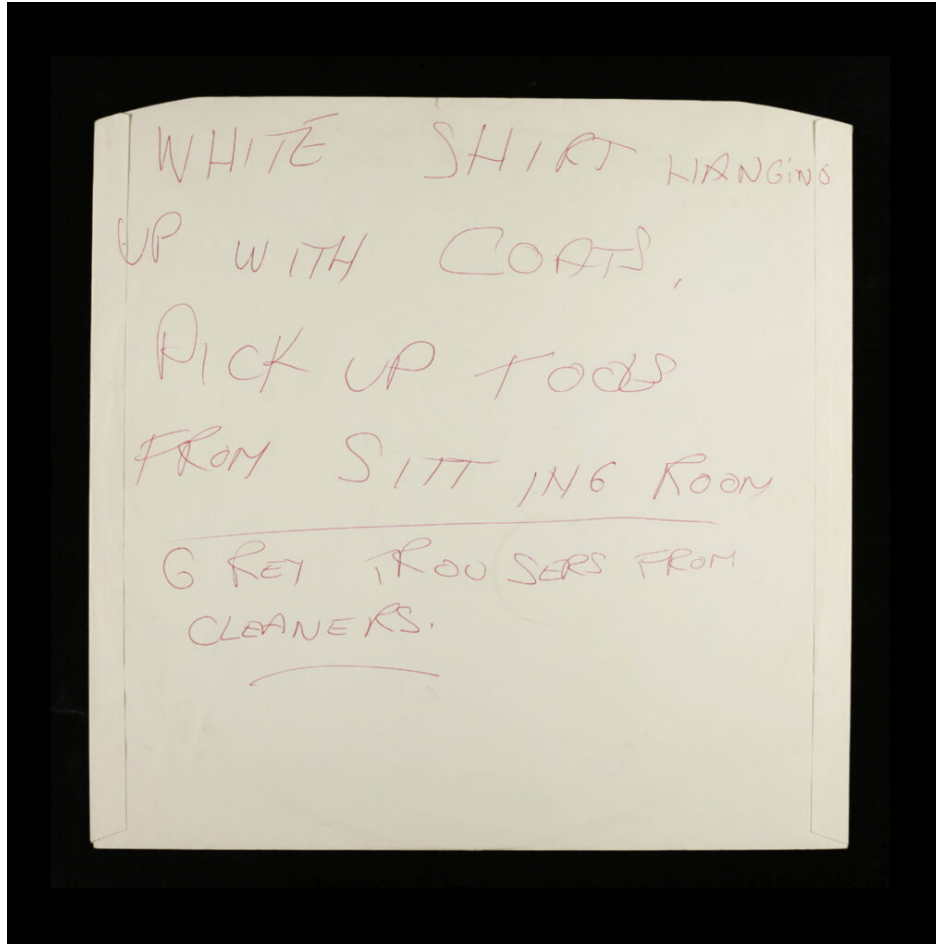 WHITE SHIRT HANGiNG
UP WITH COATS,
PICK UP TOOLS
FROM SITTING ROOM
GREY TROUSERS FROM
CLEANERS.